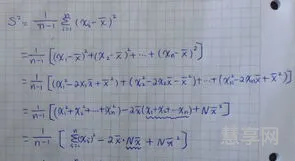 S² = 1/(n-1) Σ_{i=1}^{n} (xᵢ - x̄)²
= 1/(n-1) [(x₁ - x̄)² + (x₂ - x̄)² + ⋯ + (xₙ - x̄)²]
= 1/(n-1) [(x₁² - 2x₁x̄ + x̄²) + (x₂² - 2x₂x̄ - x̄²) + ⋯ + (xₙ² - 2xₙx̄ + x̄²)]
= 1/(n-1) [(x₁² + x₂² + ⋯ + xₙ²) - 2x̄(x₁ + x₂ + ⋯ + xₙ) + Nx̄²]
= 1/(n-1) [Σ_{i=1}^{n} (xᵢ)² - 2x̄·Nx̄ + Nx̄²]
慧享网